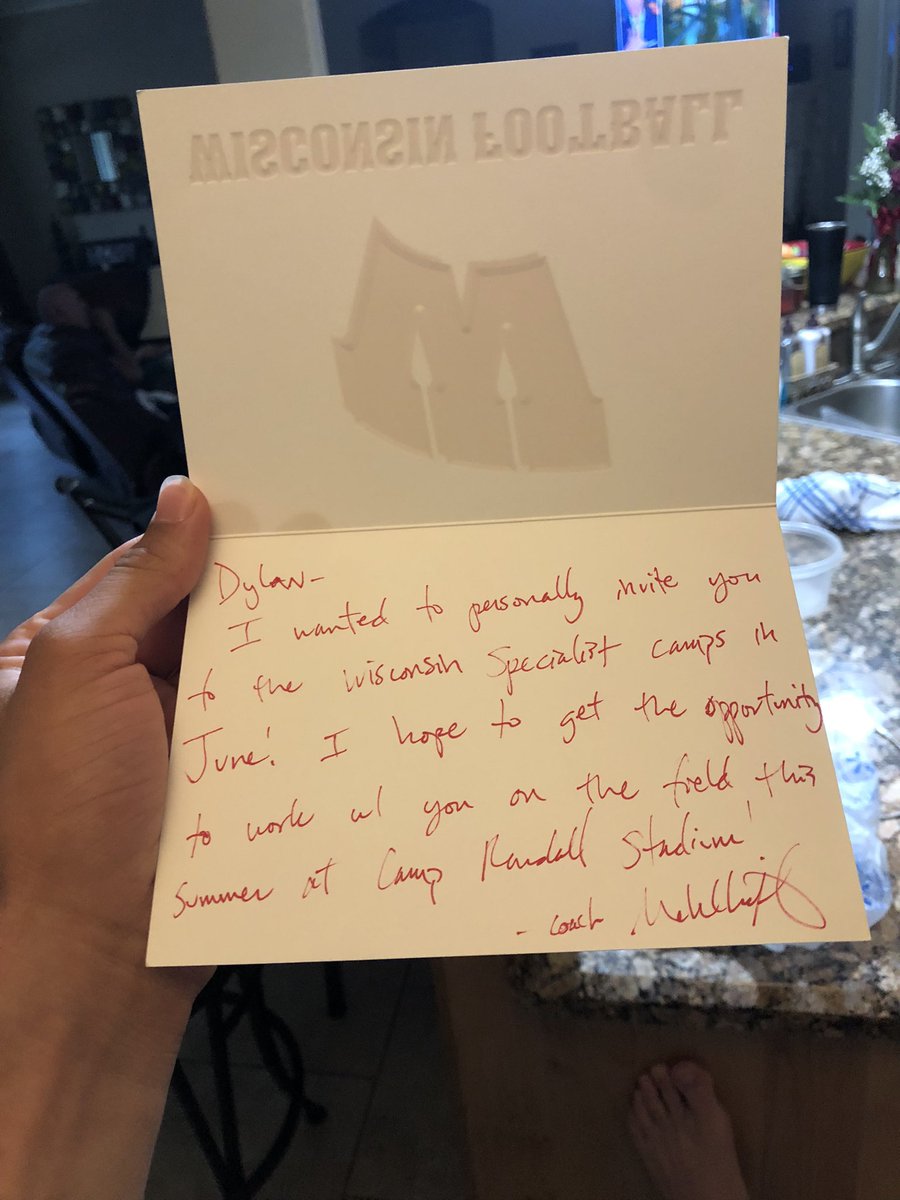 WISCONSIN FOOTBALL
Dylan-
I wanted to personally invite you
to the Wisconsin Specialist camps in
June! I hope to get the opportunity
to work w/ you on the field this
summer at Camp Randall Stadium!
- coach